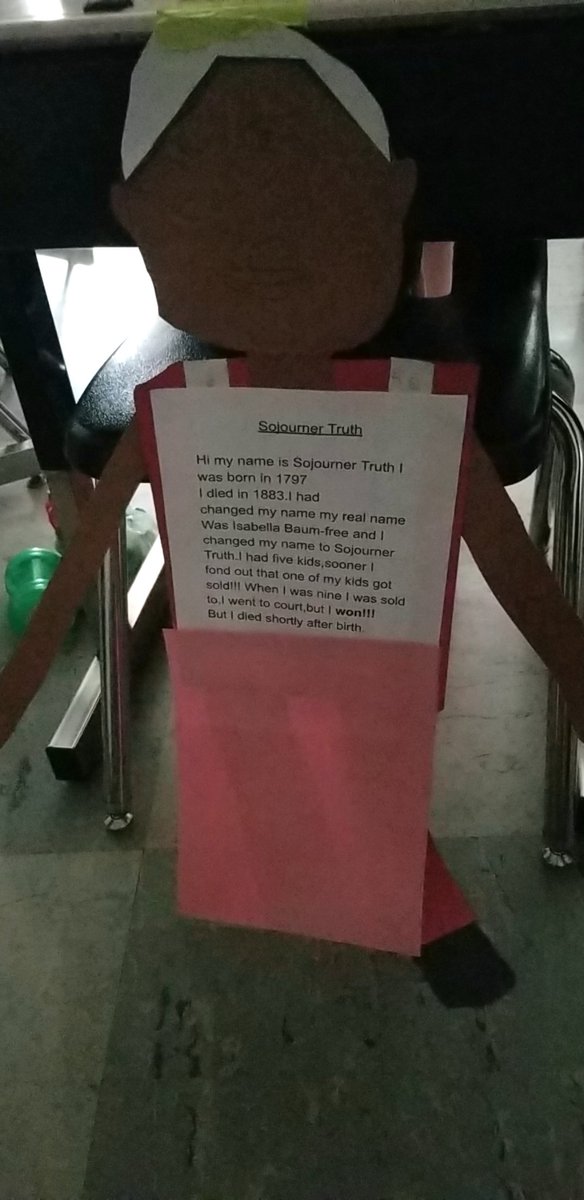 Sojourner Truth
Hi my name is Sojourner Truth I
was born in 1797
I died in 1883.I had
changed my name my real name
Was Isabella Baum-free and I
changed my name to Sojourner
Truth.I had five kids,sooner I
fond out that one of my kids got
sold!!! When I was nine I was sold
to.I went to court,but I won!!!
But I died shortly after birth.